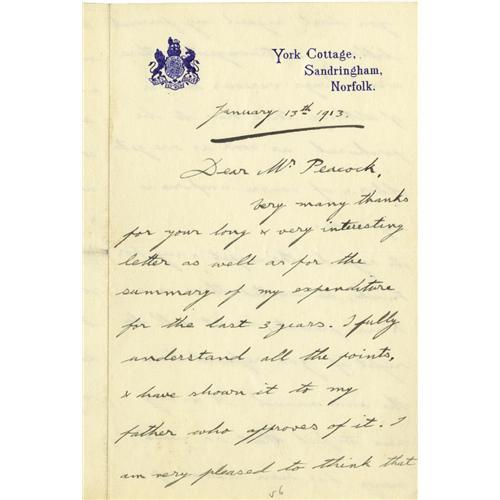 York Cottage,
Sandringham,
Norfolk.
January 13th 1913.
Dear Mr Peacock,
Very many thanks
for your long & very interesting
letter as well as for the
summary of my expenditure
for the last 3 years. I fully
understand all the points,
& have shown it to my
father who approves of it. I
am very pleased to think that
56